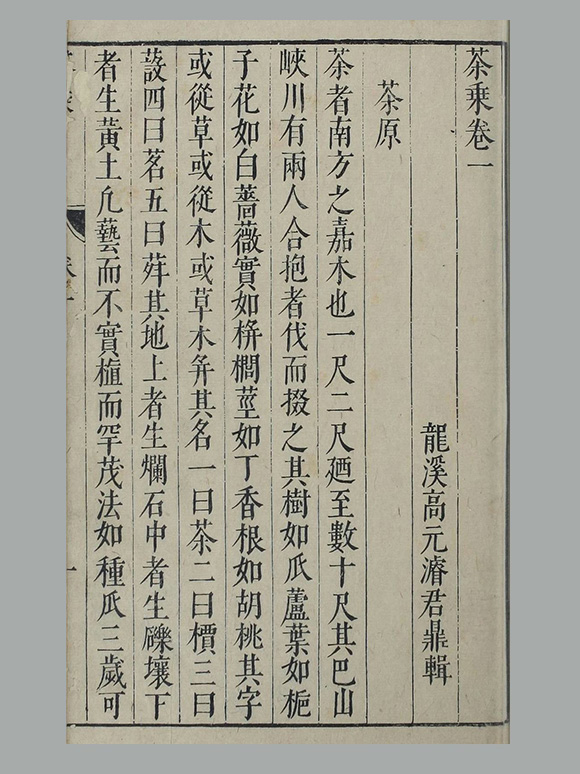 茶乗卷一
龍溪高元濬君鼎輯
茶原
茶者南方之嘉木也一尺二尺廼至數十尺其巴山
峽川有兩人合抱者伐而掇之其樹如瓜蘆葉如梔
子花如白薔薇實如栟櫚莖如丁香根如胡桃其字
或從草或從木或草木并其名一曰茶二曰檟三曰
蔎四曰茗五曰荈其地上者生爛石中者生礫壤下
者生黃土凡藝而不實植而罕茂法如種瓜三歲可